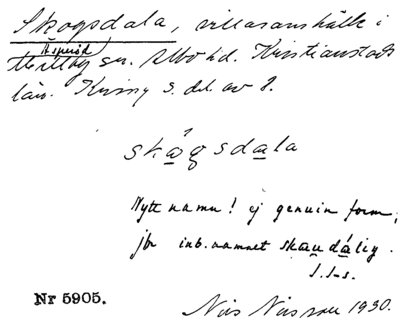 Skogsdala, villasamhälle i
Äsperöd
Träne sn. Albo hd. Kristianstads
län. Kring s. del. av J.
skågsdala
Nytt namn! ej genuin form;
jfr inb.namnet skaudálig.
I. I-s.
Nr 5905.
Nils Nilsson 1930.